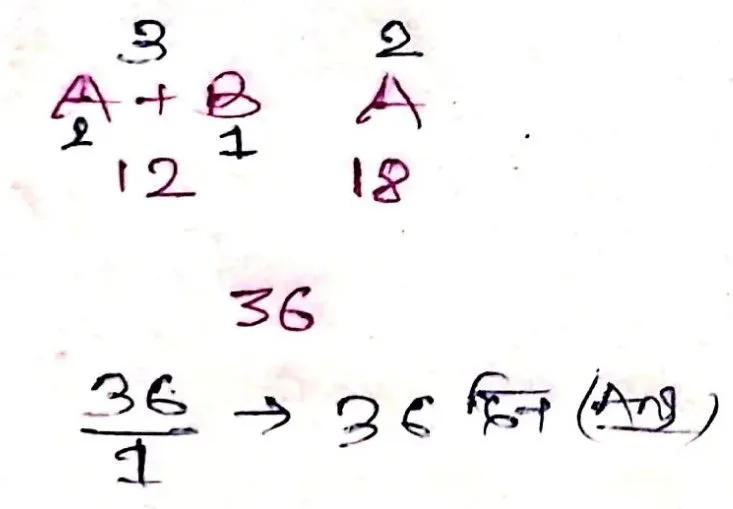 3 2
A + B A
2 1
12 18
36
36
1 → 36 দিন (Ans)